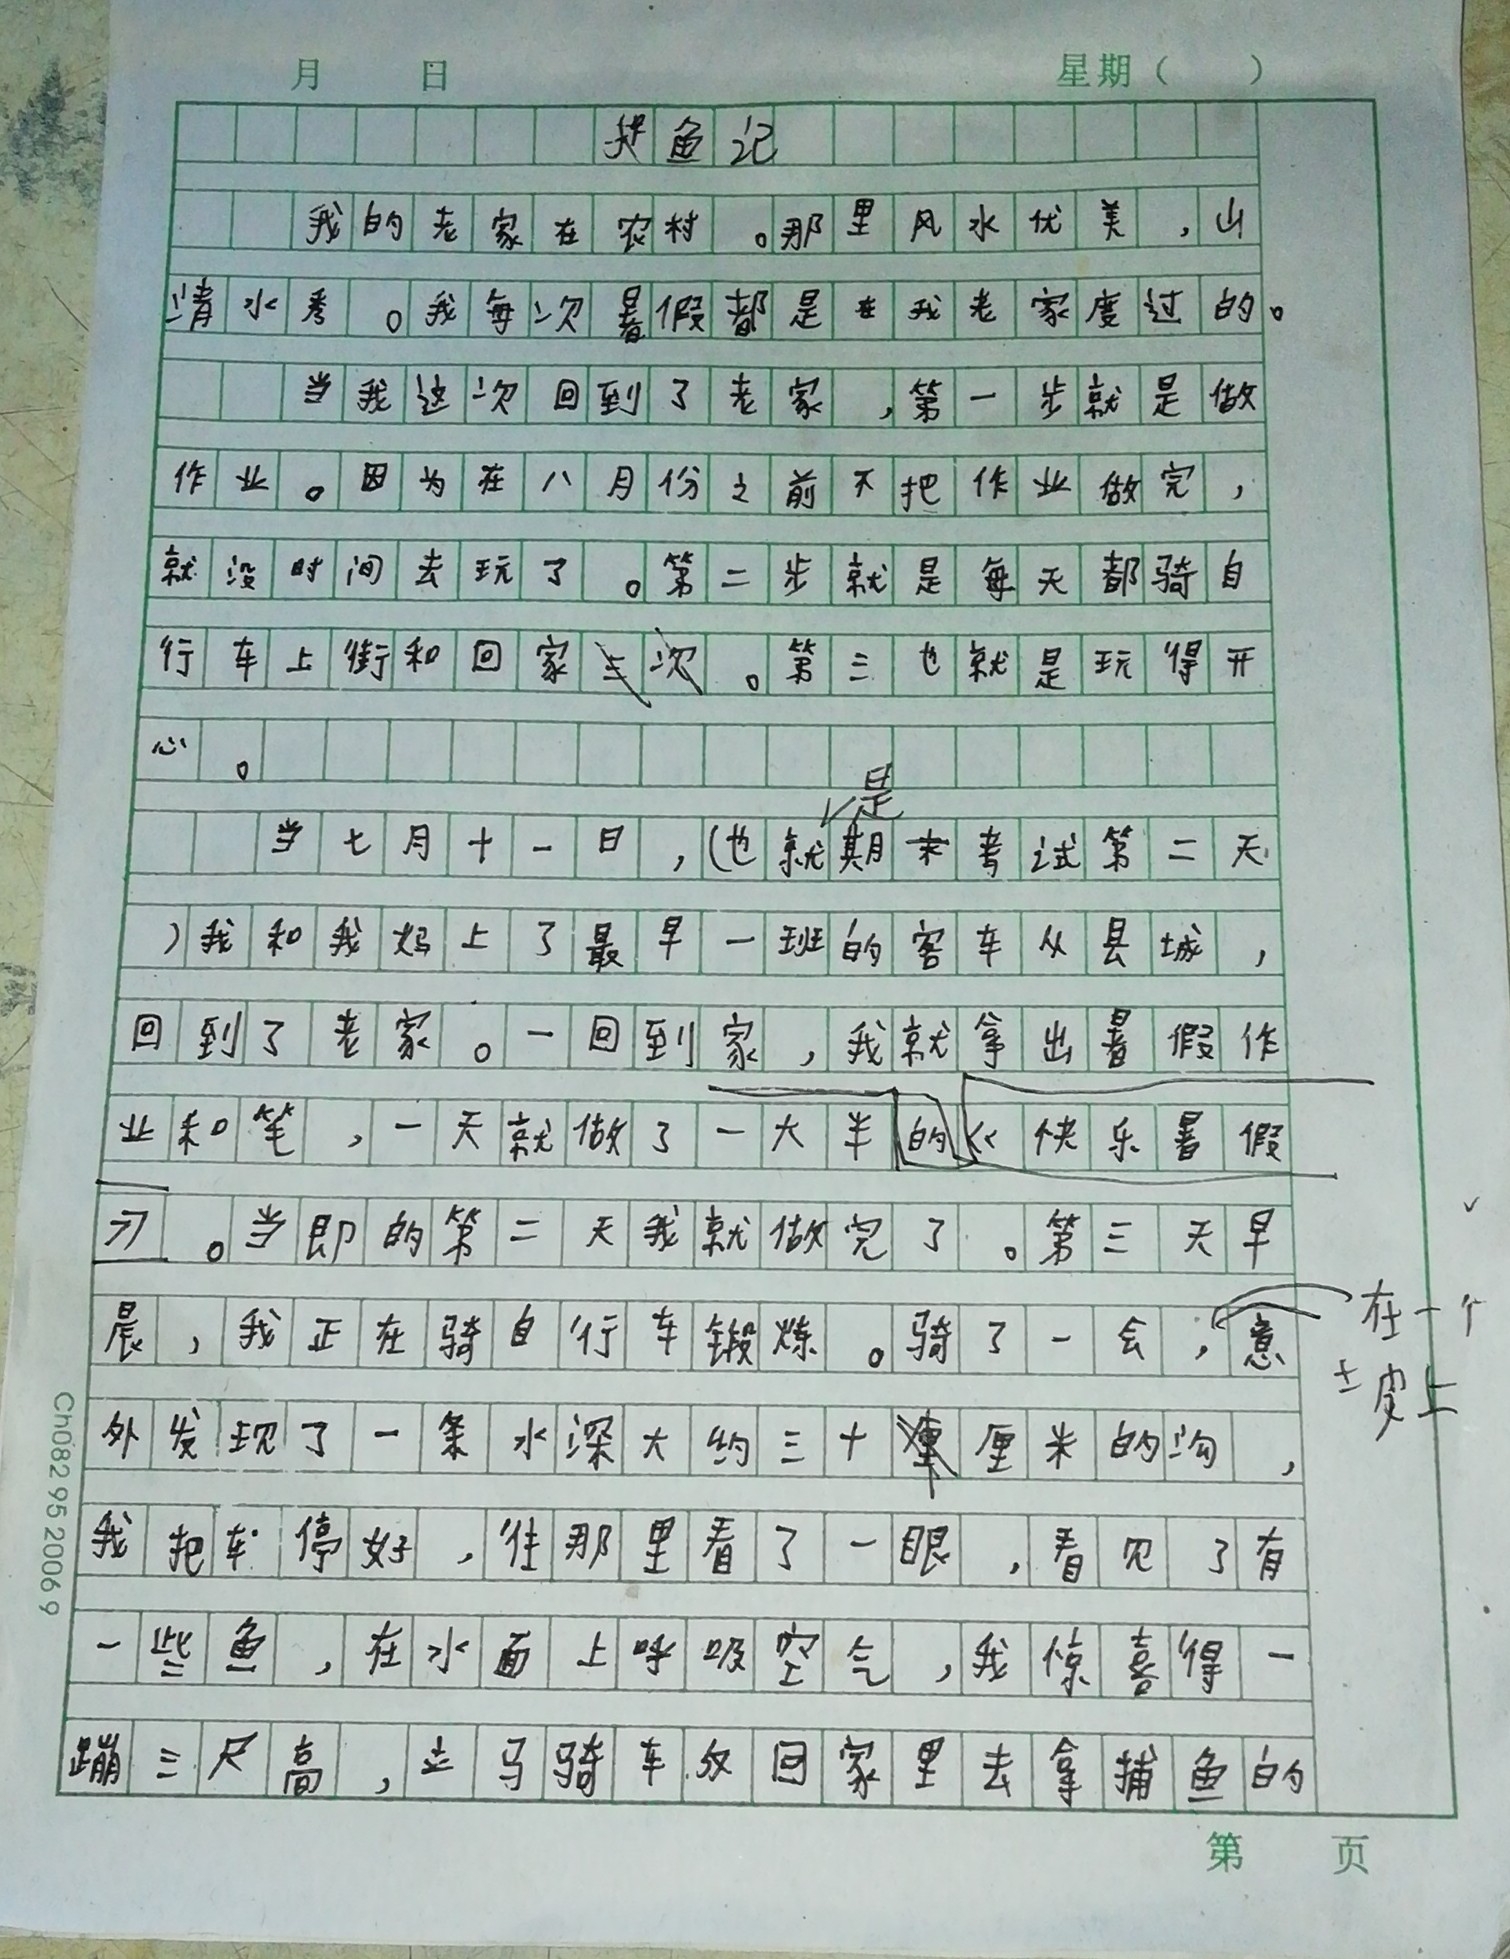 月 日 星期（ ）
鱼记
我的老家在农村。那里风水优美，山
清水秀。我每次暑假都是在我老家度过的。
当我这次回到了老家，第一步就是做
作业。因为在八月份之前不把作业做完，
就没时间去玩了。第二步就是每天都骑自
行车上街和回家。第三也就是玩得开
心。
当七月十一日，（也就是期末考试第二天
）我和我妈上了最早一班的客车从县城，
回到了老家。一回到家，我就拿出暑假作
业和笔，一天就做了一大半的《快乐暑假
。当即的第二天我就做完了。第三天早
晨，我正在骑自行车锻炼。骑了一会，意
在一个
土皮上
外发现了一条水深大约三十厘米的沟，
我把车停好，往那里看了一眼，看见了有
一些鱼，在水面上呼吸空气，我惊喜得一
蹦三尺高，立马骑车回家里去拿捕鱼的
Ch0829520069
第 页